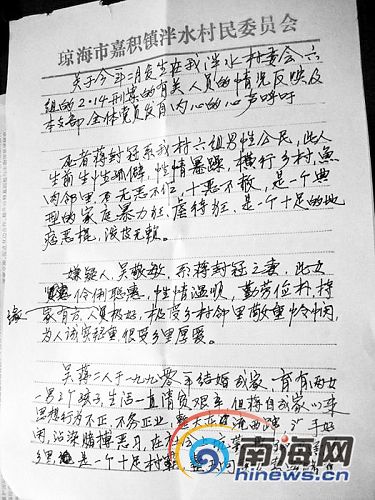 琼海市嘉积镇泮水村民委员会
关于今年二月发生在我泮水村委会六
组的2·14刑案的有关人员的情况反映及
本支部全体党员发自内心的心声呼吁
死者蒋封冠系我村六组男性公民，此人
生前生性斯僻，性情暴躁，横行乡村，鱼
肉邻里，无恶不仁，十恶不赦，是一个典
型的家庭暴力狂，虐待狂，是一个十足的地
痞恶棍，流皮无赖。
嫌疑人，吴敬敏，系蒋封冠之妻，此女
贤惠伶俐聪惠，性情温顺，勤劳俭朴，持
家有方，人缘极好，极受乡村邻里敬重怜悯，
为人诚实稳重很受乡里厚爱。
吴蒋二人于一九九〇年结婚成家，育有两女
一男3个孩子，生活一直清贫艰辛，但蒋自成家以来
思想行为不正，不务正业，整天 好
闲，沾染赌博恶习，在
乡里，是一个十足村
南海网
www.hinews.cn